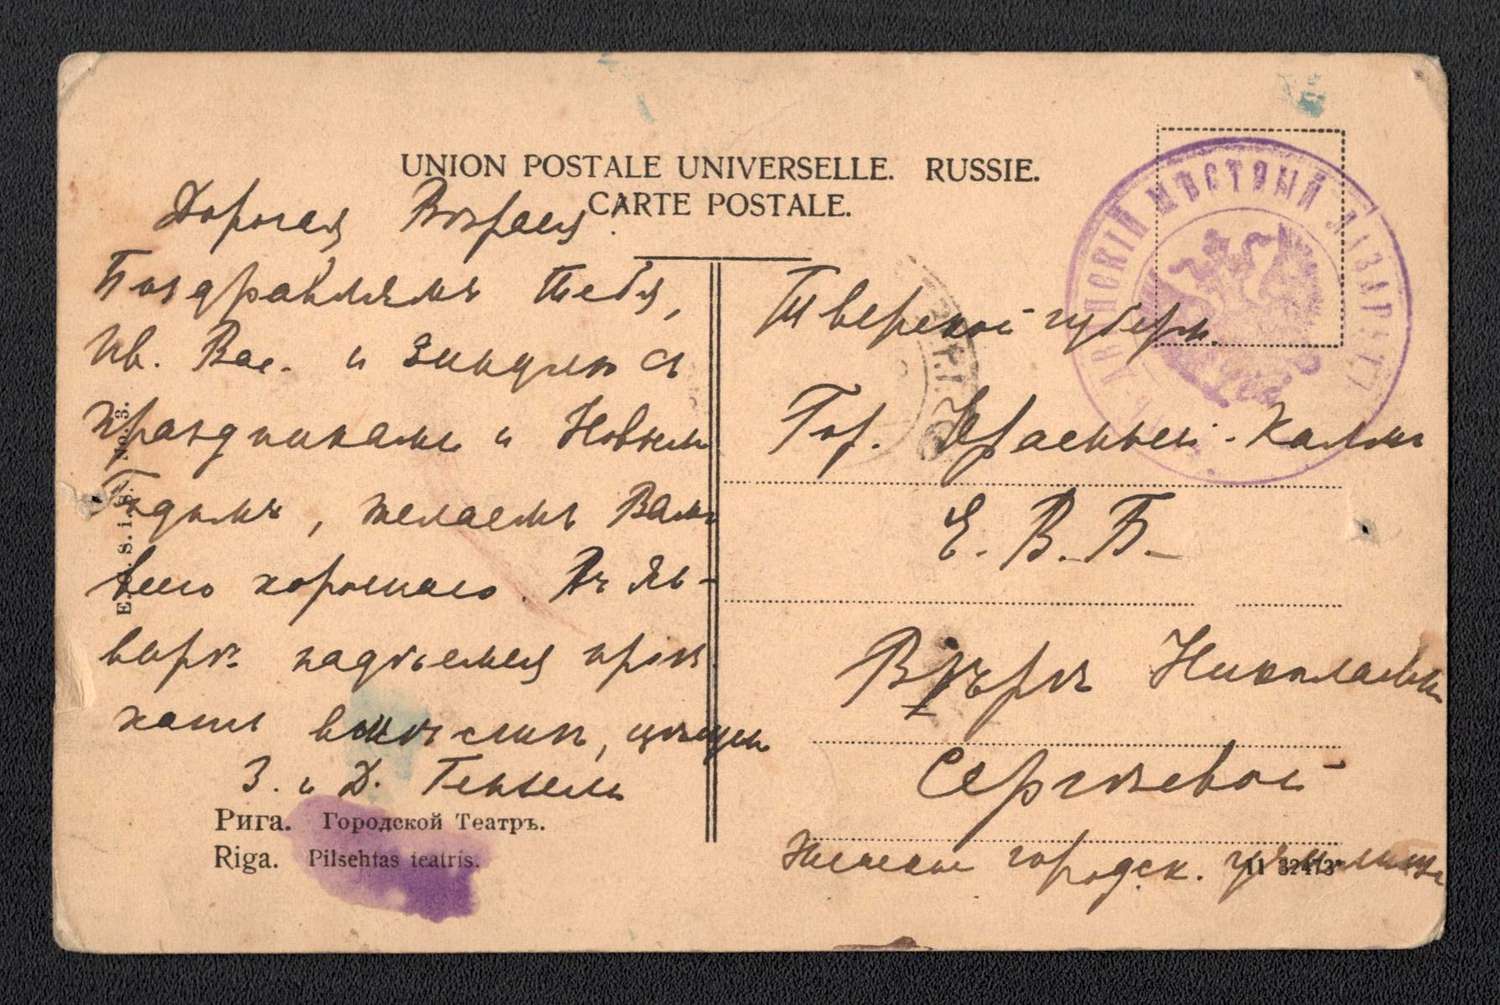 UNION POSTALE UNIVERSELLE. RUSSIE.
CARTE POSTALE.
Дорогая
Поздравляемъ Тебя,
Ив. Вас. и Зинулю съ
праздниками и Новымъ
Годомъ, желаемъ Вамъ
всего хорошаго. Въ Ян-
варѣ надѣемся прое
хать вмѣстѣ,
З. и Д.
Рига. Городской Театръ.
Riga. Pilsehtas teatris.
МѢСТНЫЙ ЛАЗАРЕТЪ
Тверской губерн.
Гор. Красный-Холмъ
Е. В. Б.
Вѣрѣ Николаевнѣ
Сергѣевой
Женское городск. училище
11 32473